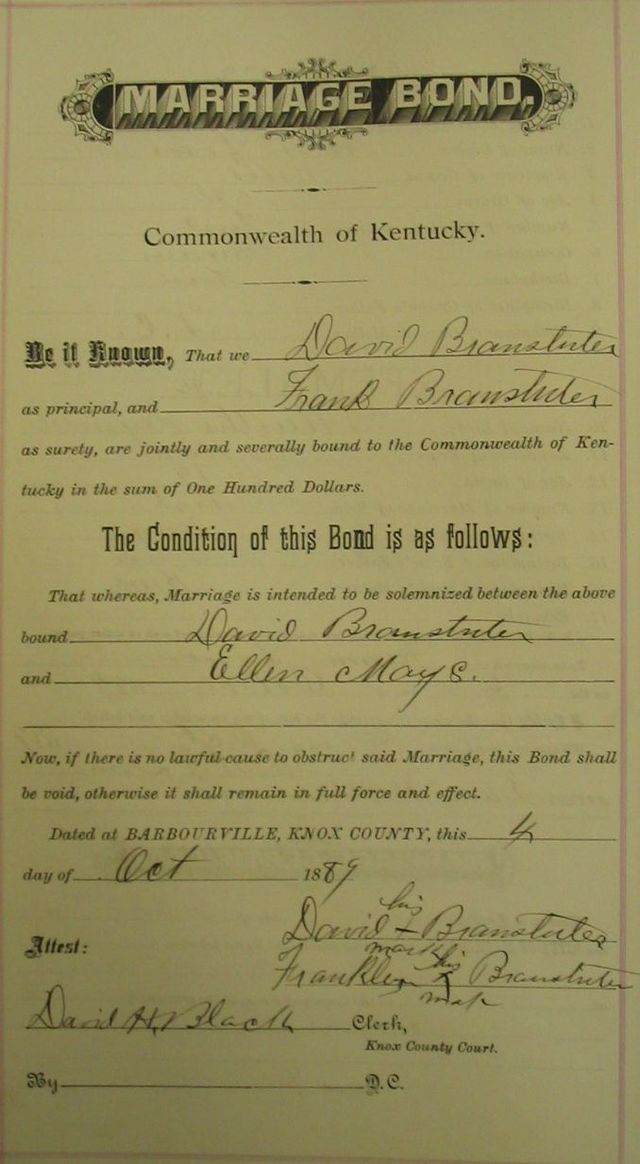 MARRIAGE BOND.
Commonwealth of Kentucky.
Be it Known, That we David Branstuter
as principal, and Frank Branstuter
as surety, are jointly and severally bound to the Commonwealth of Ken-
tucky in the sum of One Hundred Dollars.
The Condition of this Bond is as follows:
That whereas, Marriage is intended to be solemnized between the above
bound David Branstuter
and Ellen Mays.
Now, if there is no lawful cause to obstruct said Marriage, this Bond shall
be void, otherwise it shall remain in full force and effect.
Dated at BARBOURVILLE, KNOX COUNTY, this 4
day of Oct 1889
his
David + Branstuter
mark
Attest:
his
Franklin X Branstuter
mark
David H. Black Clerk,
Knox County Court.
By D.C.